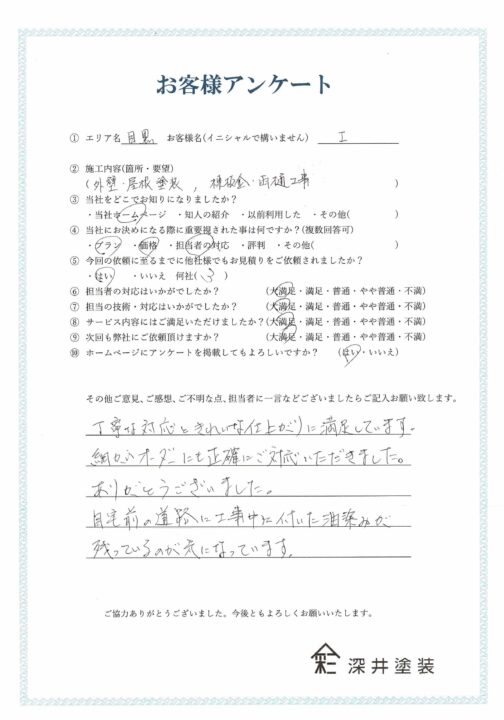 お客様アンケート
① エリア名 目黒 お客様名(イニシャルで構いません) I
② 施工内容(箇所・要望)
(外壁・屋根塗装, 棟板金・雨樋工事 )
③ 当社をどこでお知りになりましたか?
・当社ホームページ ・知人の紹介 ・以前利用した ・その他( )
④ 当社にお決めになる際に重要視された事は何ですか?(複数回答可)
・プラン ・価格 ・担当者の対応 ・評判 ・その他( )
⑤ 今回の依頼に至るまでに他社様でもお見積りをご依頼されましたか?
・はい ・いいえ 何社( 3 )
⑥ 担当者の対応はいかがでしたか? (大満足・満足・普通・やや普通・不満)
⑦ 担当の技術・対応はいかがでしたか? (大満足・満足・普通・やや普通・不満)
⑧ サービス内容にはご満足いただけましたか?(大満足・満足・普通・やや普通・不満)
⑨ 次回も弊社にご依頼頂けますか? (大満足・満足・普通・やや普通・不満)
⑩ ホームページにアンケートを掲載してもよろしいですか? (はい・いいえ)
その他ご意見、ご感想、ご不明な点、担当者に一言などございましたらご記入お願い致します。
丁寧な対応ときれいな仕上がりに満足しています。
細かいオーダーにも正確にご対応いただきました。
ありがとうございました。
自宅前の道路に工事中に付いた油染みが
残っているのが気になっています。
ご協力ありがとうございました。今後ともよろしくお願いいたします。
深井塗装